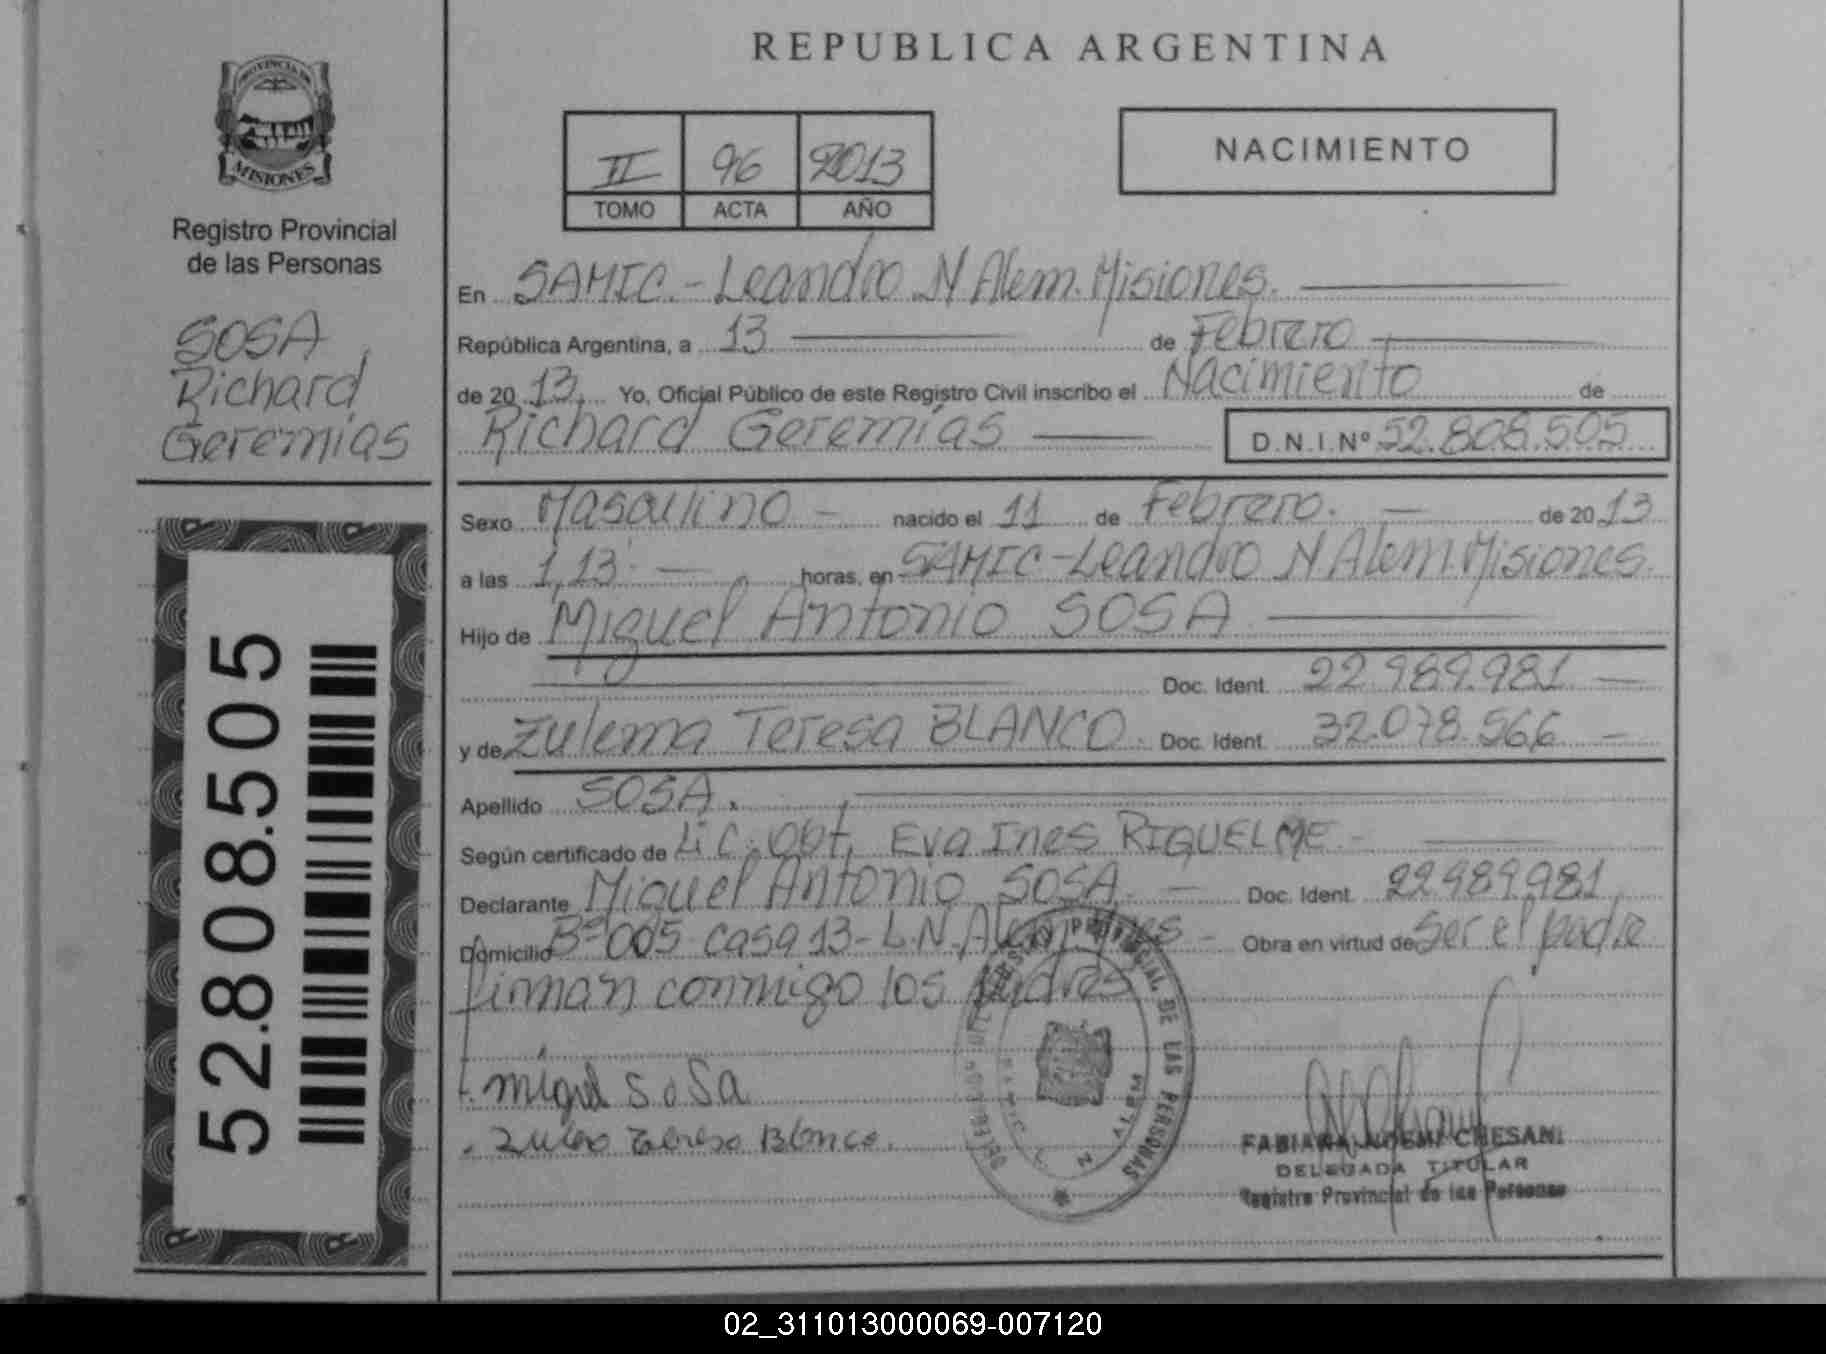 REPUBLICA ARGENTINA
PROVINCIA DE
MISIONES
Registro Provincial
de las Personas
SOSA
Richard
Geremías
52.808.505
II 96 2013
TOMO ACTA AÑO
NACIMIENTO
En SAMIC.- Leandro N Alem. Misiones.
República Argentina, a 13 de Febrero
de 20 13 Yo, Oficial Público de este Registro Civil inscribo el Nacimiento de
Richard Geremías D.N.I.Nº 52.808.505
Sexo Masculino - nacido el 11 de Febrero. de 20 13
a las 1,13 horas, en SAMIC - Leandro N Alem. Misiones.
Hijo de Miguel Antonio SOSA
Doc. Ident. 22.989.981
y de Zulema Teresa BLANCO. Doc. Ident. 32.078.566
Apellido SOSA.
Según certificado de Lic. Obt. Eva Ines RIQUELME -
Declarante Miguel Antonio SOSA. Doc. Ident. 22.989.981
Domicilio Bº 005 casa 13 - L.N. Alem Obra en virtud de ser el padre
firman conmigo los padres
miguel SoSa
Teresa Blanco.
REGISTRO PROVINCIAL DE LAS PERSONAS
N. ALEM
FABIANA NOEMI CHESANI
DELEGADA TITULAR
Registro Provincial de las Personas
02_311013000069-007120